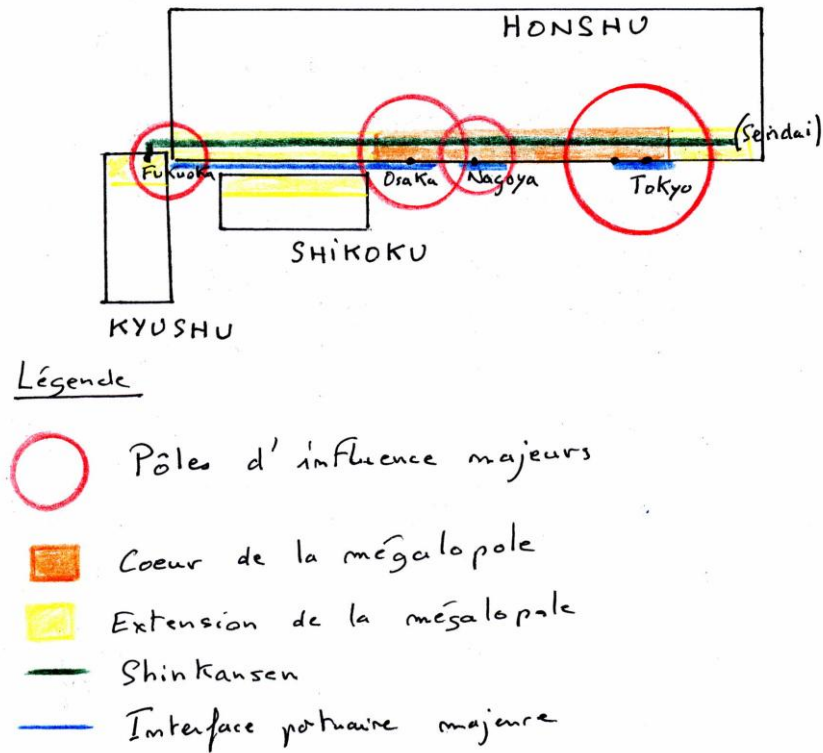 HONSHU
(Sendai)
Fukuoka
Osaka
Nagoya
Tokyo
SHIKOKU
KYUSHU
Légende
Pôles d'influence majeurs
Coeur de la mégalopole
Extension de la mégalopole
Shinkansen
Interface portuaire majeure